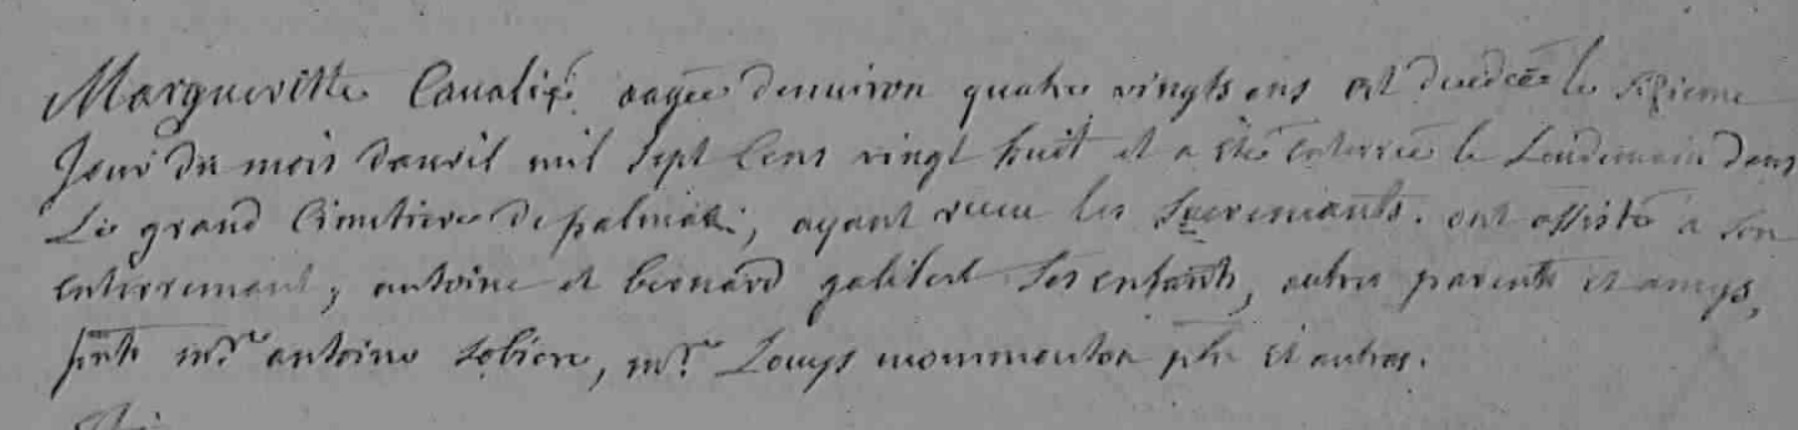 Margueritte Caualié aagée denuiron quatre vingts ans est decedée le sixieme
Jour du mois dauril mil sept Cens vingt huit et a eté enterrée le Lendemain dans
Le grand Cimetiere de palmat; ayant receu les Sacremants. ont assisté a son
enterremant, antoine et bernard galibert ses enfants, autres parents et amys,
pnts mr. antoine soliere, mr. Louys mommouton ptr et autres.